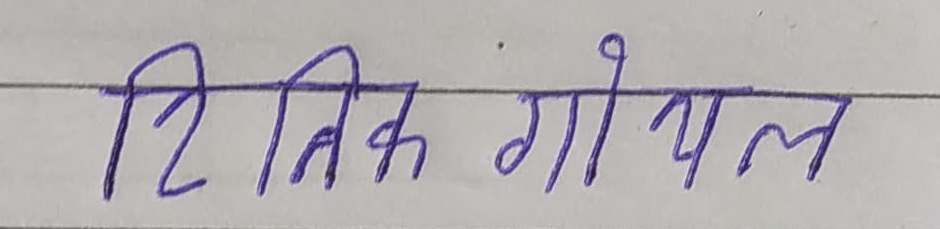 रितिक गोयल